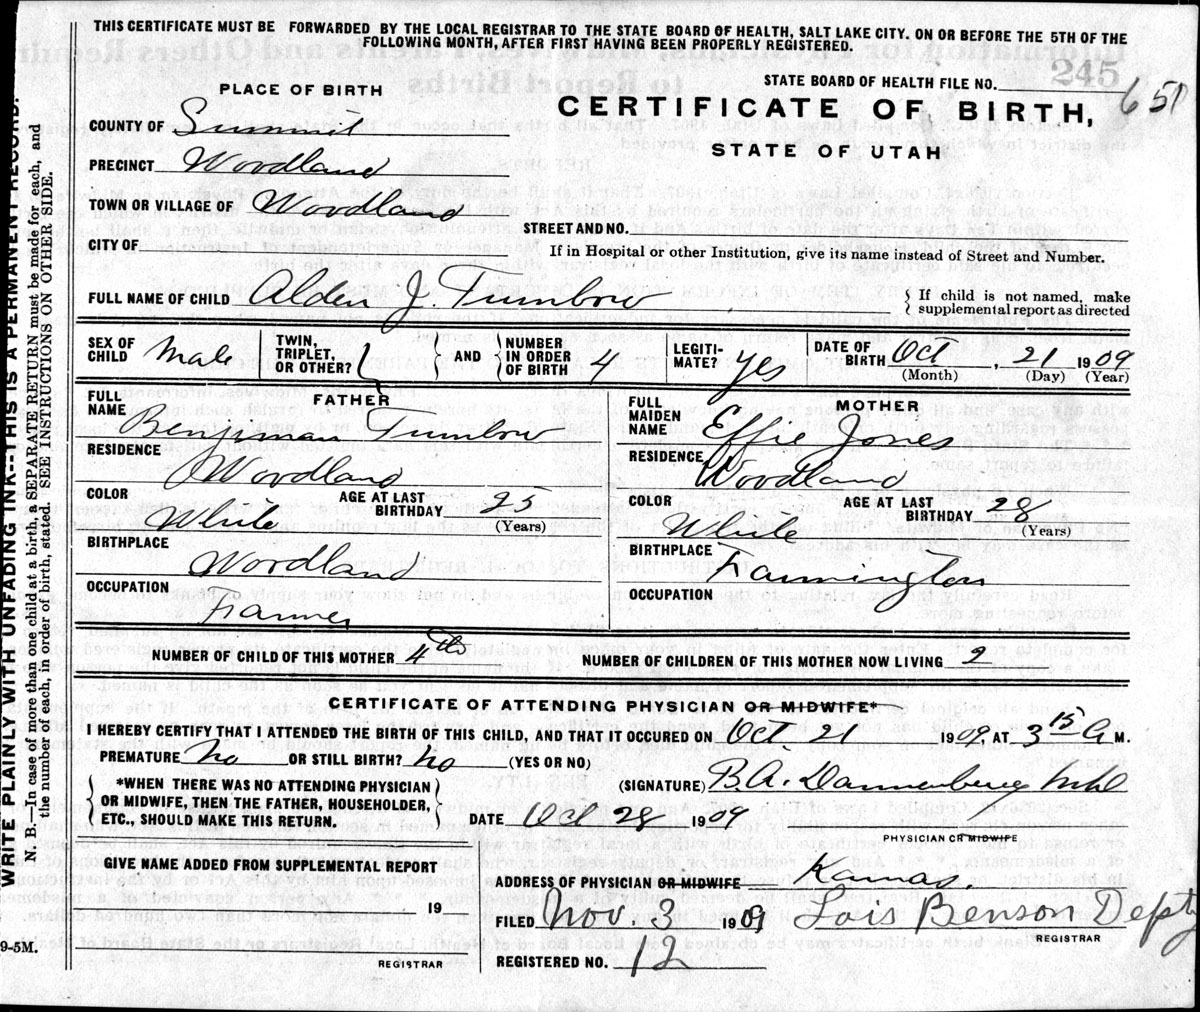 THIS CERTIFICATE MUST BE FORWARDED BY THE LOCAL REGISTRAR TO THE STATE BOARD OF HEALTH, SALT LAKE CITY. ON OR BEFORE THE 5TH OF THE
FOLLOWING MONTH, AFTER FIRST HAVING BEEN PROPERLY REGISTERED.
WRITE PLAINLY WITH UNFADING INK---THIS IS A PERMANENT RECORD.
N. B.—In case of more than one child at a birth, a SEPARATE RETURN must be made for each, and
the number of each, in order of birth, stated. SEE INSTRUCTIONS ON OTHER SIDE.
PLACE OF BIRTH
STATE BOARD OF HEALTH FILE NO. 245 650
CERTIFICATE OF BIRTH,
STATE OF UTAH
COUNTY OF Summit
PRECINCT Woodland
TOWN OR VILLAGE OF Woodland
STREET AND NO.
CITY OF
If in Hospital or other Institution, give its name instead of Street and Number.
FULL NAME OF CHILD Alden J. Turnbow
If child is not named, make
supplemental report as directed
SEX OF CHILD Male
TWIN, TRIPLET, OR OTHER?
AND
NUMBER IN ORDER OF BIRTH 4
LEGITIMATE? Yes
DATE OF BIRTH Oct, 21 1909
(Month) (Day) (Year)
FATHER
FULL NAME Benjiman Turnbow
RESIDENCE Woodland
COLOR White
AGE AT LAST BIRTHDAY 35
(Years)
BIRTHPLACE Woodland
OCCUPATION Farmer
MOTHER
FULL MAIDEN NAME Effie Jones
RESIDENCE Woodland
COLOR White
AGE AT LAST BIRTHDAY 28
(Years)
BIRTHPLACE Farmington
OCCUPATION
NUMBER OF CHILD OF THIS MOTHER 4th
NUMBER OF CHILDREN OF THIS MOTHER NOW LIVING 2
CERTIFICATE OF ATTENDING PHYSICIAN OR MIDWIFE*
I HEREBY CERTIFY THAT I ATTENDED THE BIRTH OF THIS CHILD, AND THAT IT OCCURED ON Oct. 21 1909 AT 3 15 A M.
PREMATURE No OR STILL BIRTH? No (YES OR NO)
*WHEN THERE WAS NO ATTENDING PHYSICIAN
OR MIDWIFE, THEN THE FATHER, HOUSEHOLDER,
ETC., SHOULD MAKE THIS RETURN.
(SIGNATURE) B.A. Dannenberg M.D
DATE Oct 28 1909
PHYSICIAN OR MIDWIFE
GIVE NAME ADDED FROM SUPPLEMENTAL REPORT
ADDRESS OF PHYSICIAN OR MIDWIFE Kamas.
FILED Nov. 3 1909 Lois Benson Depty
REGISTRAR
REGISTERED NO. 12
REGISTRAR
9-5M.